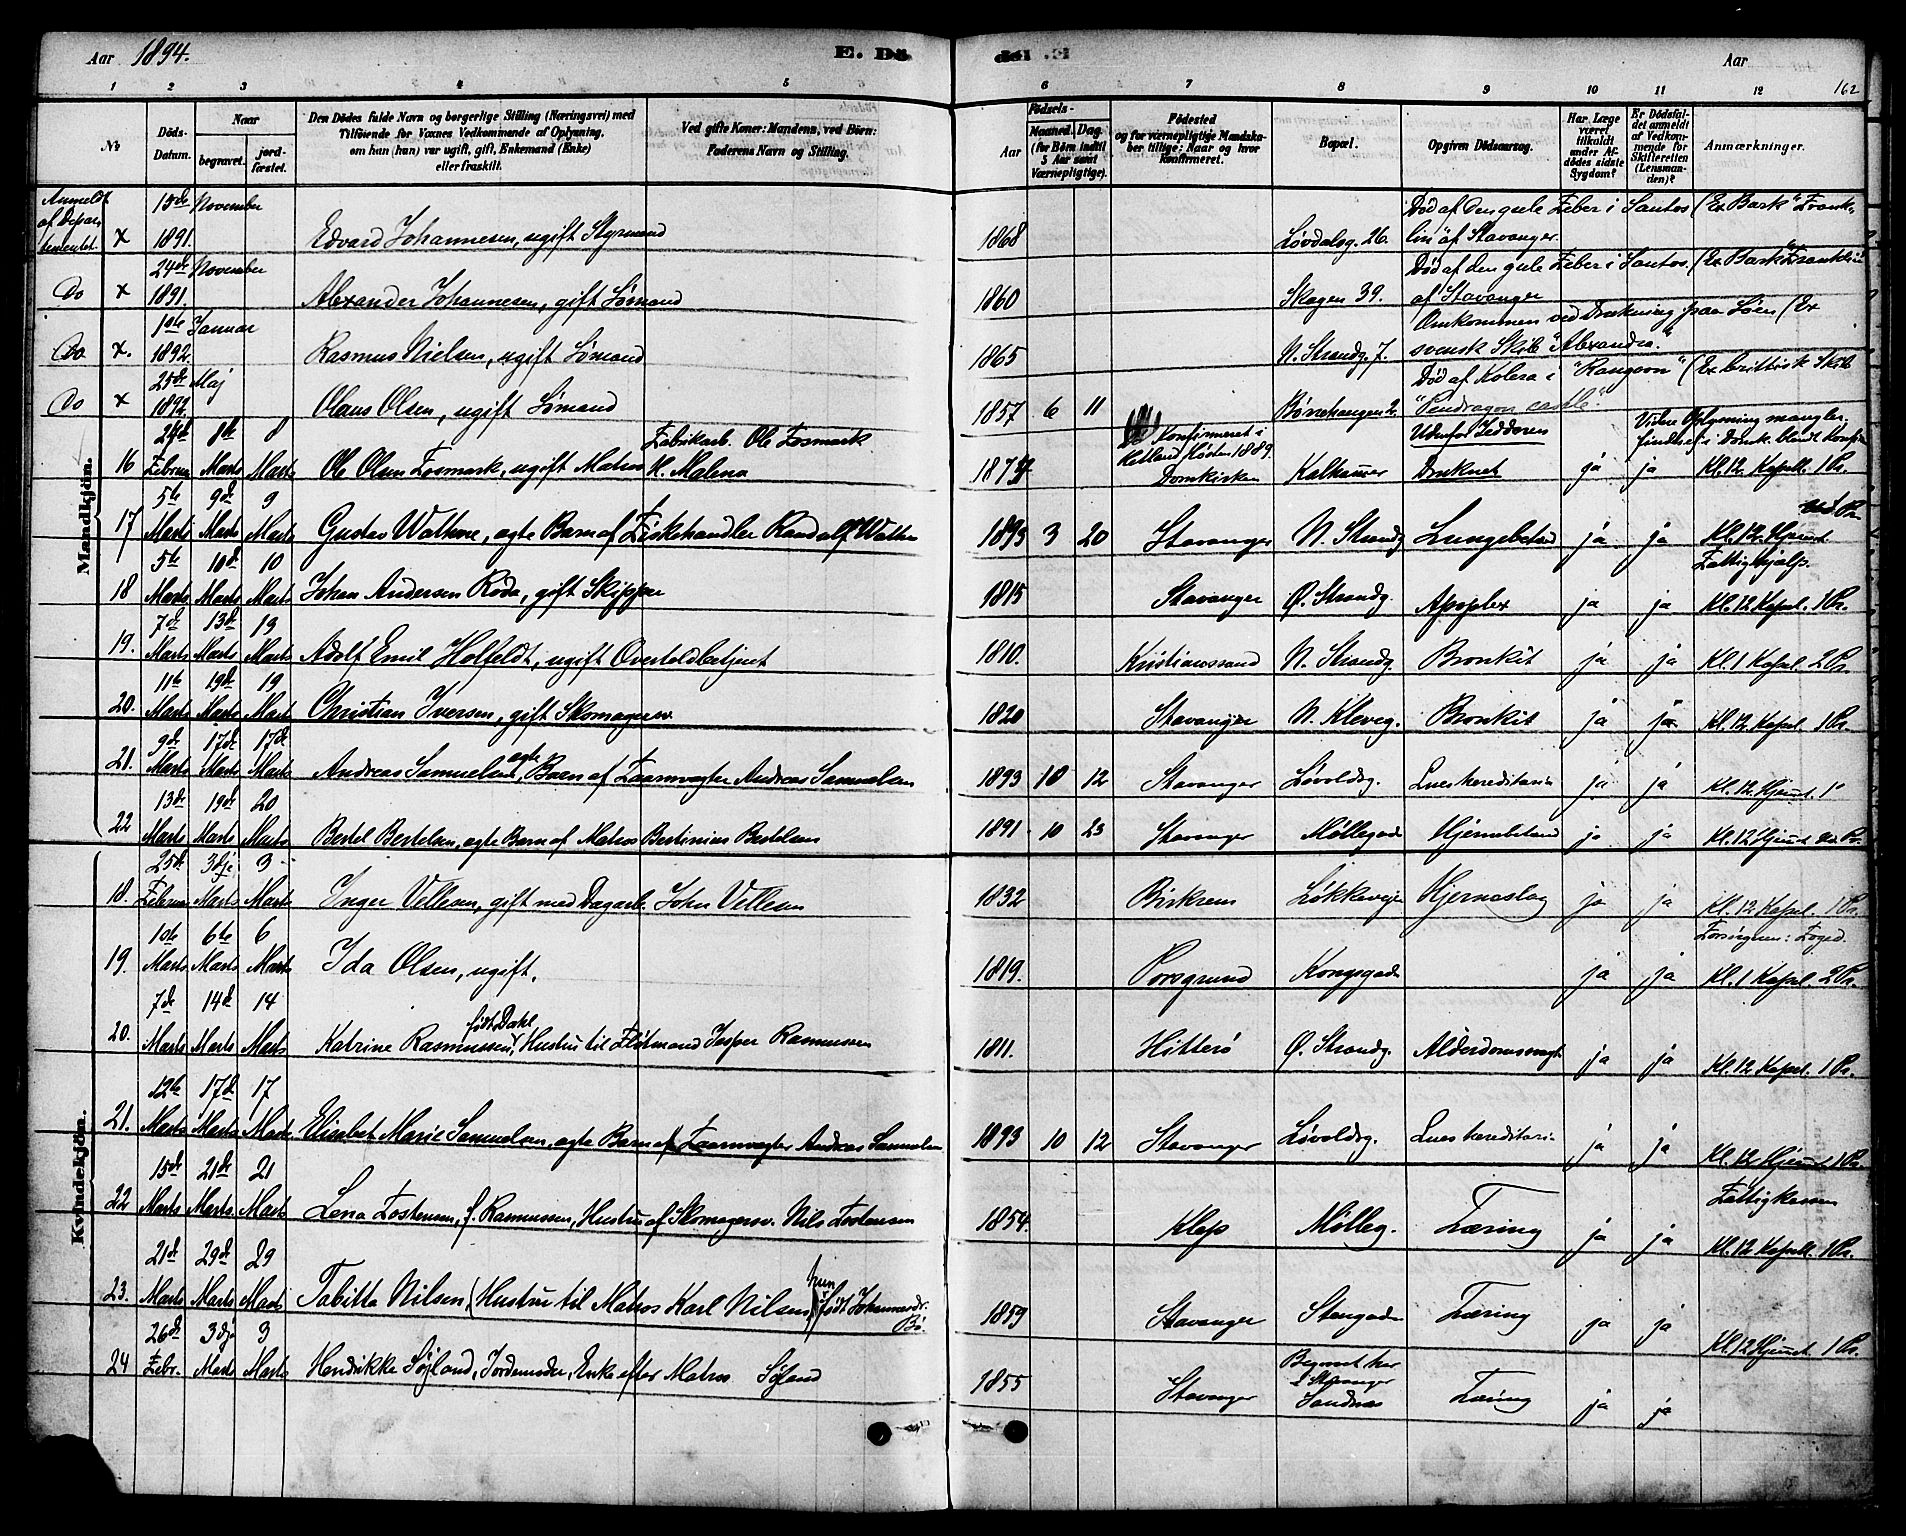 Aar 1894. E. Dö del .E Aar 162
1 2 3 4 5 6 7 8 9 10 11 12
№
Döds-Datum.
Naar
begravet. jordfæstet.
Den Dödes fulde Navn og borgerlige Stilling (Næringsvei) med
Tilföiende for Voxnes Vedkommende af Oplysning,
om han (hun) var ugift, gift, Enkemand (Enke)
eller fraskilt.
Ved gifte Koner: Mandens, ved Börn:
Faderens Navn og Stilling.
Födsels-
Aar Maaned. Dag.
(for Börn indtil
5 Aar samt
Værnepligtige).
Födested
og for værnepligtige Mandskaber
tillige: Naar og hvor
Konfirmeret.
Bopæl.
Opgiven Dödsaarsag.
Har Læge
været
tilkaldt
under Afdödes
sidste
Sygdom?
Er Dödsfaldet
anmeldt
af Vedkommende
for
Skifteretten
(Lensmanden)?
Anmærkninger.
Anmeldt af Departementet x 15de November 1891. Edvard Johannesen, ugift Styrmand 1868 Løvdalsg. 26. Død af den gule Feber i Santos (Ex Bark "Franklin" af Stavanger.
Do x 24de November 1891. Alexander Johannesen, gift Sømand 1860 Skagen 39. Død af den gule Feber i Santos. (Ex Bark "Franklin" af Stavanger
Do x. 1ste Januar 1892. Rasmus Nielsen, ugift Sømand 1865 N. Strandg. 7. Omkommen ved Drukning paa Søen (Ex svensk Skib "Alexandra."
Do x 25de Maj 1892. Olaus Olsen, ugift Sømand 1857 6 11 Børrehaugen 2. Død af Kolera i "Rangoon" (Ex brittisk Skib "Pendragon castle".
Mandkjön.
16 24de Februar 8de Marts 8 Marts Ole Olsen Fosmark, ugift Matros Fabrikarb. Ole Fosmark 1874 Konfirmeret i Hetland Høsten 1889. Domkirken Kalhammer Udenfor Jædderen Druknet ja ja Videre Oplysning mangler. Kl. 12. Kapell. 1 Pr.
17 5te Marts 9de Marts 9 Marts Gustav Wathne, ægte Barn af Fiskehandler Randolf Wathne 1893 3 20 Stavanger N. Strandg. Lungebetænd ja ja Kl. 12. Hjemmet
18 5te Marts 10de Marts 10 Marts Johan Andersen Røda, gift Skipper 1815 Stavanger Ø. Strandg. Apoplex ja ja Fattighjælp. Kl. 12 Kapel. 1 Pr.
19. 7de Marts 13de Marts 13 Marts Adolf Emil Holfeldt, ugift Overtoldbetjent 1810. Kristianssand N. Strandg. Bronkit ja ja Kl. 1 Kapel. 2 Pr.
20. 11te Marts 19de Marts 19 Marts Christian Iversen, gift Skomagersv. 1820 Stavanger N. Kleveg. Bronkit ja ja Kl. 12. Kapel. 1 Pr.
21. 9de Marts 17de Marts 17de Marts Andreas Samuelsen, ægte Barn af Taarnvægter Andreas Samuelsen 1893 10 12 Stavanger Løvoldsg. Lues hereditaria ja ja Kl. 12. Hjemmet. 1
22 13de Marts 19de Marts 20 Marts Bertel Bertelsen, ægte Barn af Matros Bertinius Bertelsen 1891 10 23 Stavanger Møllegad Hjernebetænd ja ja Kl. 12 Hjemmet
Kvindekjön.
18. 25de Februar 3dje Marts 3 Marts Inger Vellesen, gift med Dagarb. John Vellesen 1832 Birkrem Løkkevejen Hjerneslag ja ja Kl. 12 Kapel. 1 Pr.
19. 10de Marts 6te Marts 6 Marts Ida Olsen, ugift. 1819. Porsgrund Kongsgade ja ja Kl. 1 Kapel. 2 Pr.
20. 7de Marts 14de Marts 14 Marts Katrine Rasmussen, født Dahl Hustru til Fløtmand Jesper Rasmussen 1811. Hitterø Ø. Strandg. Alderdomssvagh ja ja Kl. 12 Kapel. 1 Pr.
21. 12te Marts 17de Marts 17 Marts Elisabet Marie Samuelsen, ægte Barn af Taarnvægter Andreas Samuelsen 1893 10 12 Stavanger Løvoldsg. Lues hereditaria ja ja Kl. 12 Hjemmet 1 Pr.
22 15de Marts 21de Marts 21 Marts Lena Tostensen, f. Rasmussen, Hustru af Skomagersv. Nils Tostensen 1854. Klep Mølleg. Tæring ja ja Fattigkassen Kl. 12 Kapell. 1 Pr.
23. 21de Marts 29de Marts 29 Marts Tabitta Nilsen, (Hustru til Matros Karl Nilsen, hun født Johannesdr. Bø. 1859 Stavanger Stengade Tæring ja ja Kl. 12 Hjemmet. 1 Pr.
24 26de Febr. 3dje Marts 3 Marts Hendrikke Søjland, Jordemoder, Enke efter Matros Søjland 1855 Stavanger Begravet her i Stavanger Sandnæs Tæring ja ja